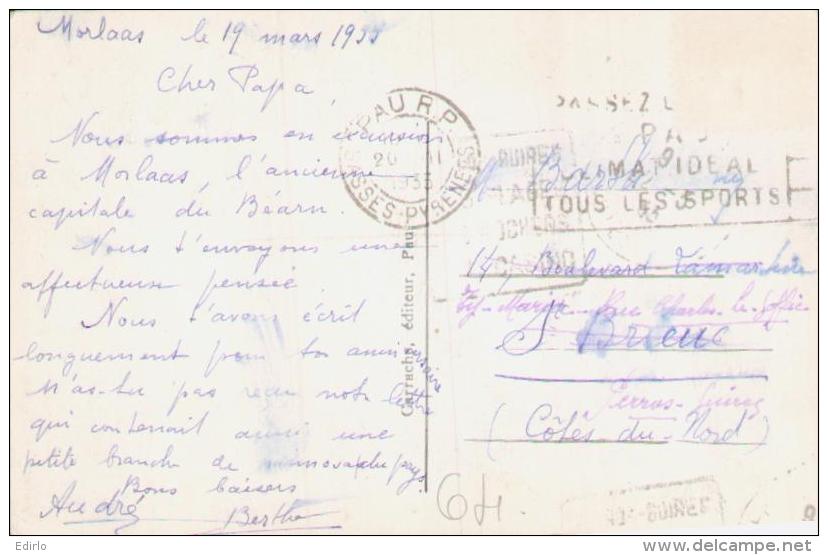 Morlaas le 19 mars 1933
Cher Papa
Nous sommes en excursion
à Morlaas l'ancienne
capitale du Béarn.
Nous t'envoyons une
affectueuse pensée
Nous t'avons écrit
longuement pour ton anni
versaire
N'as-tu pas reçu notre lettre
qui contenait aussi une
petite branche de mimosa du pays.
Bons baisers
André Berthe
Carrache, éditeur, Pau
PAU R.P.
20 III
1933
BASSES-PYRENEES
PAU
CLIMAT IDEAL
TOUS LES SPORTS
14, Boulevard
Ty-Marie Rue Charles le Goffic
St Brieuc
Perros-Guirec
(Côtes-du-Nord)
64.
GUIREC
PLAGE
ROCHERS
CASINO
OS-GUIREC
Edirlo
delcampe.net